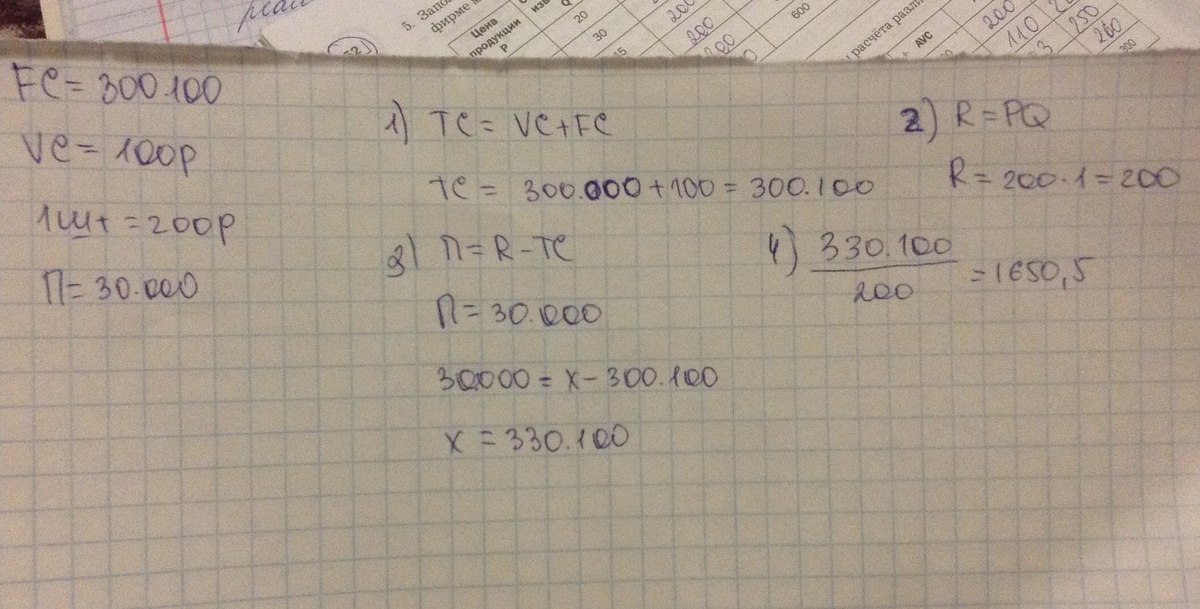 5. Запо
фирме м
Цена
продукции
P
20
30
200
200
600
расчёта разли
AVC
200
110
250
260
300
FC = 300.100
VC = 100р
1шт = 200р
П = 30.000
1) TC = VC + FC
TC = 300.000 + 100 = 300.100
2) R = PQ
R = 200 · 1 = 200
3) П = R - TC
П = 30.000
30000 = x - 300.100
x = 330.100
4) 330.100
200
= 1650,5